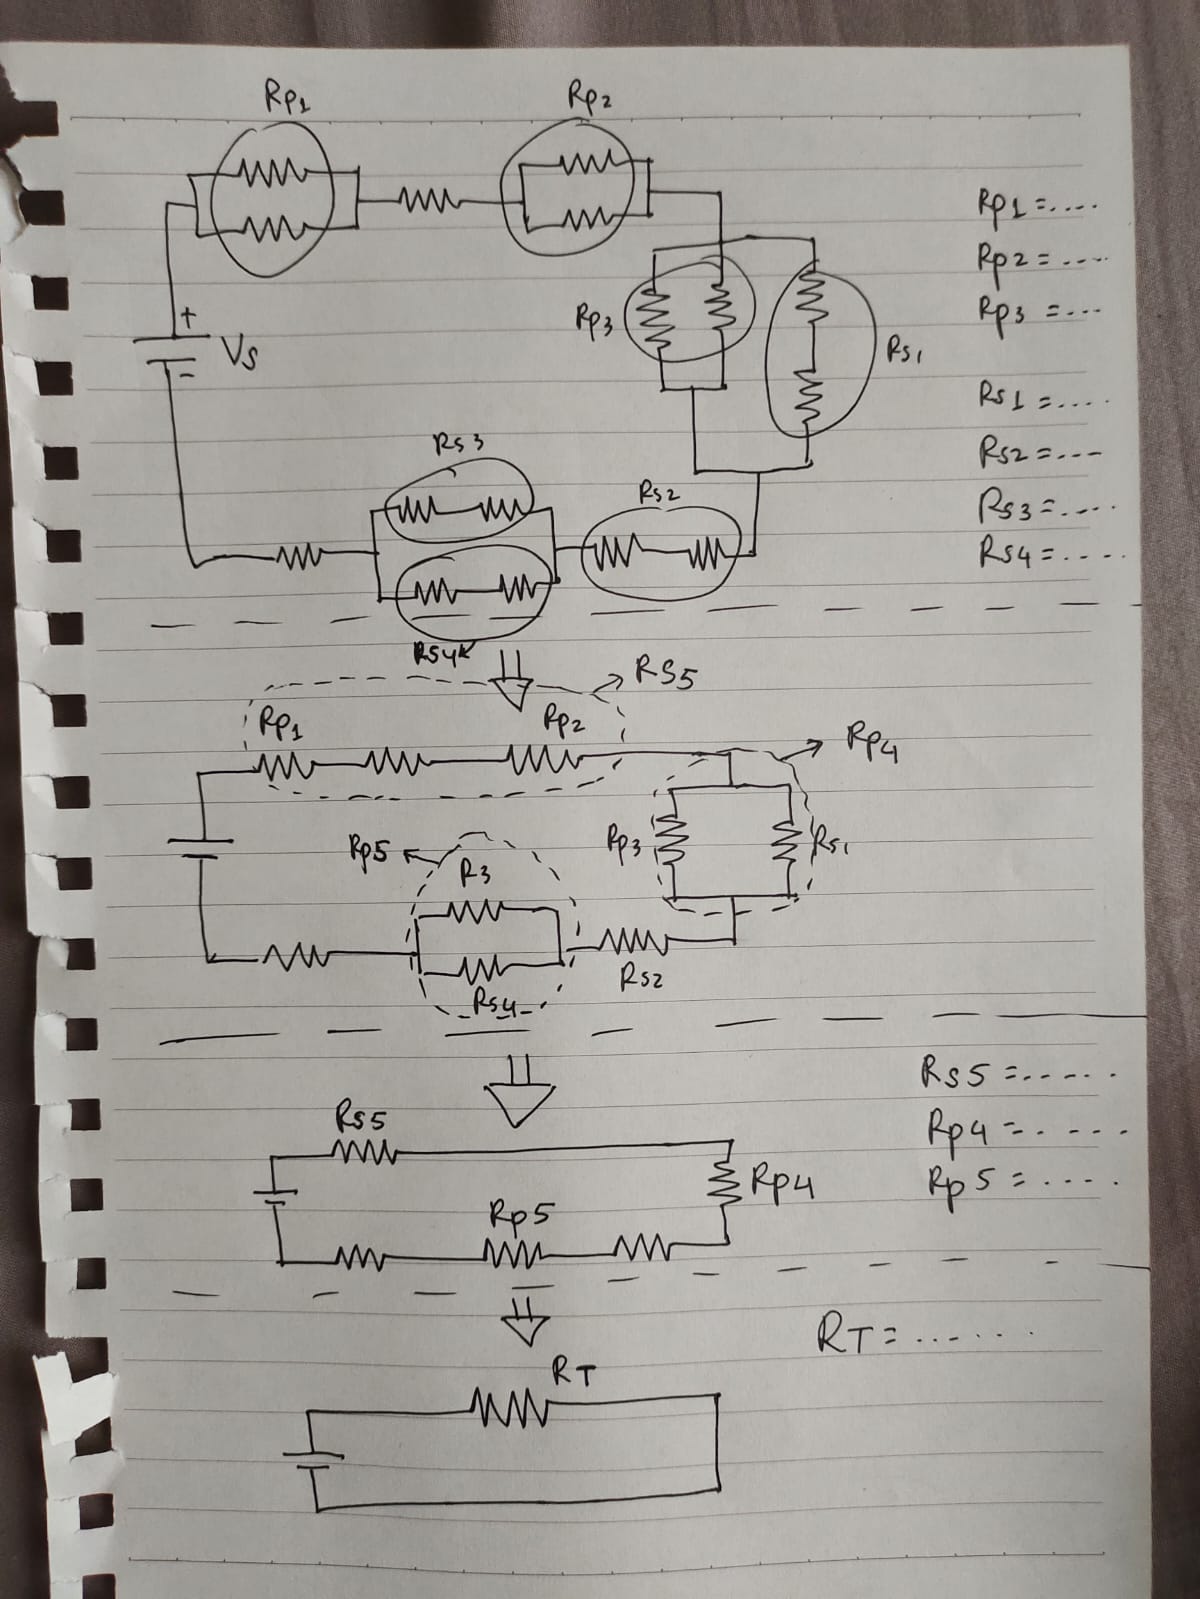 Rp1 Rp2
Rp1 =....
Rp2 = ....
Rp3 =...
+
Vs
-
Rp3
Rs1
Rs1 =....
Rs2 =---
Rs3 =....
Rs4 =.....
Rs3
Rs2
Rs4
Rs5
Rp1 Rp2
Rp4
Rp5
Rp3
Rs1
R3
Rs2
Rs4
Rs5 =.....
Rp4 =.....
Rp5 =....
Rs5
Rp4
Rp5
RT=......
RT